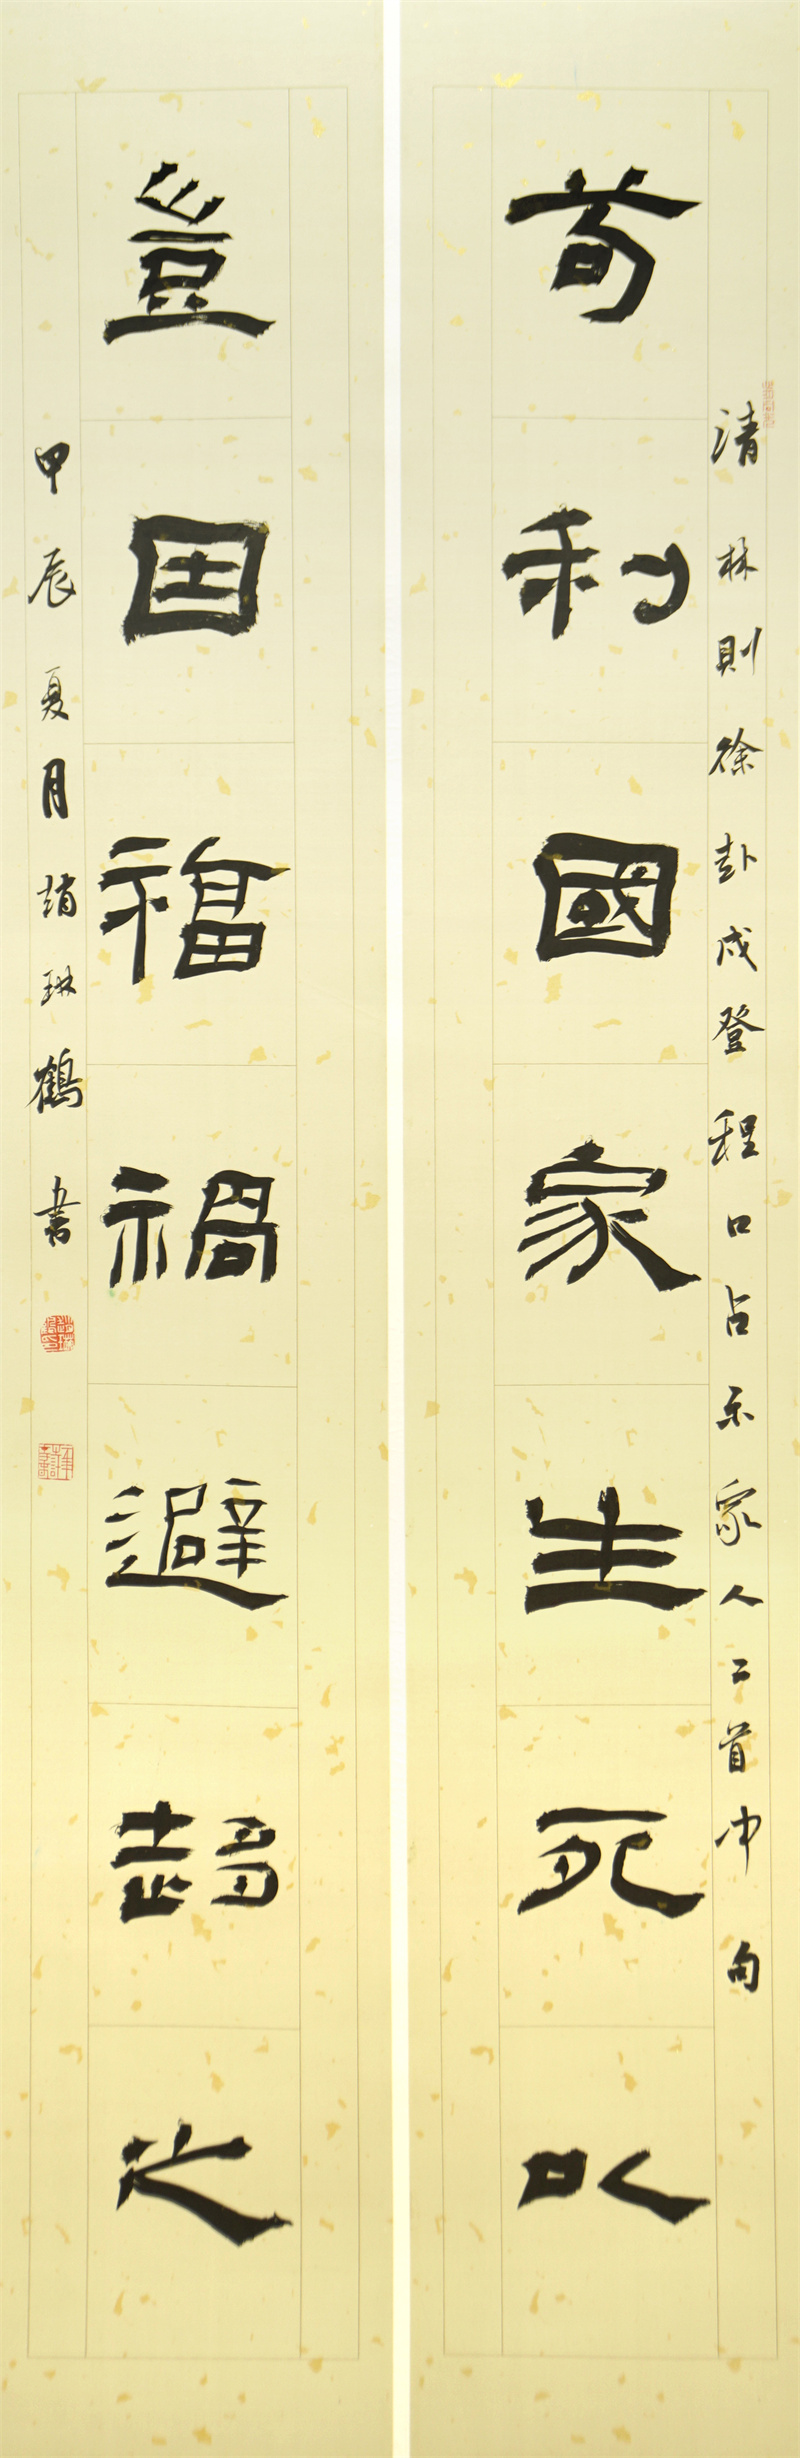 清林則徐赴戍登程口占示家人二首中句
苟利國家生死以
豈因福禍避趍之
甲辰夏月趙琳鶴書